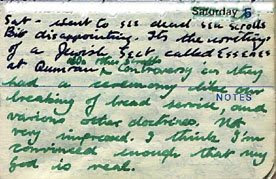 Saturday 5
Sat - went to see dead sea scrolls
Bit disappointing. It's the writings
of a Jewish Sect called Essenes
other scrolls
at Qumran. Controversy as they
had a ceremony like our
NOTES
breaking of bread service, and
various other doctrines. Not
very impressed. I think I'm
convinced enough that my
God is real.